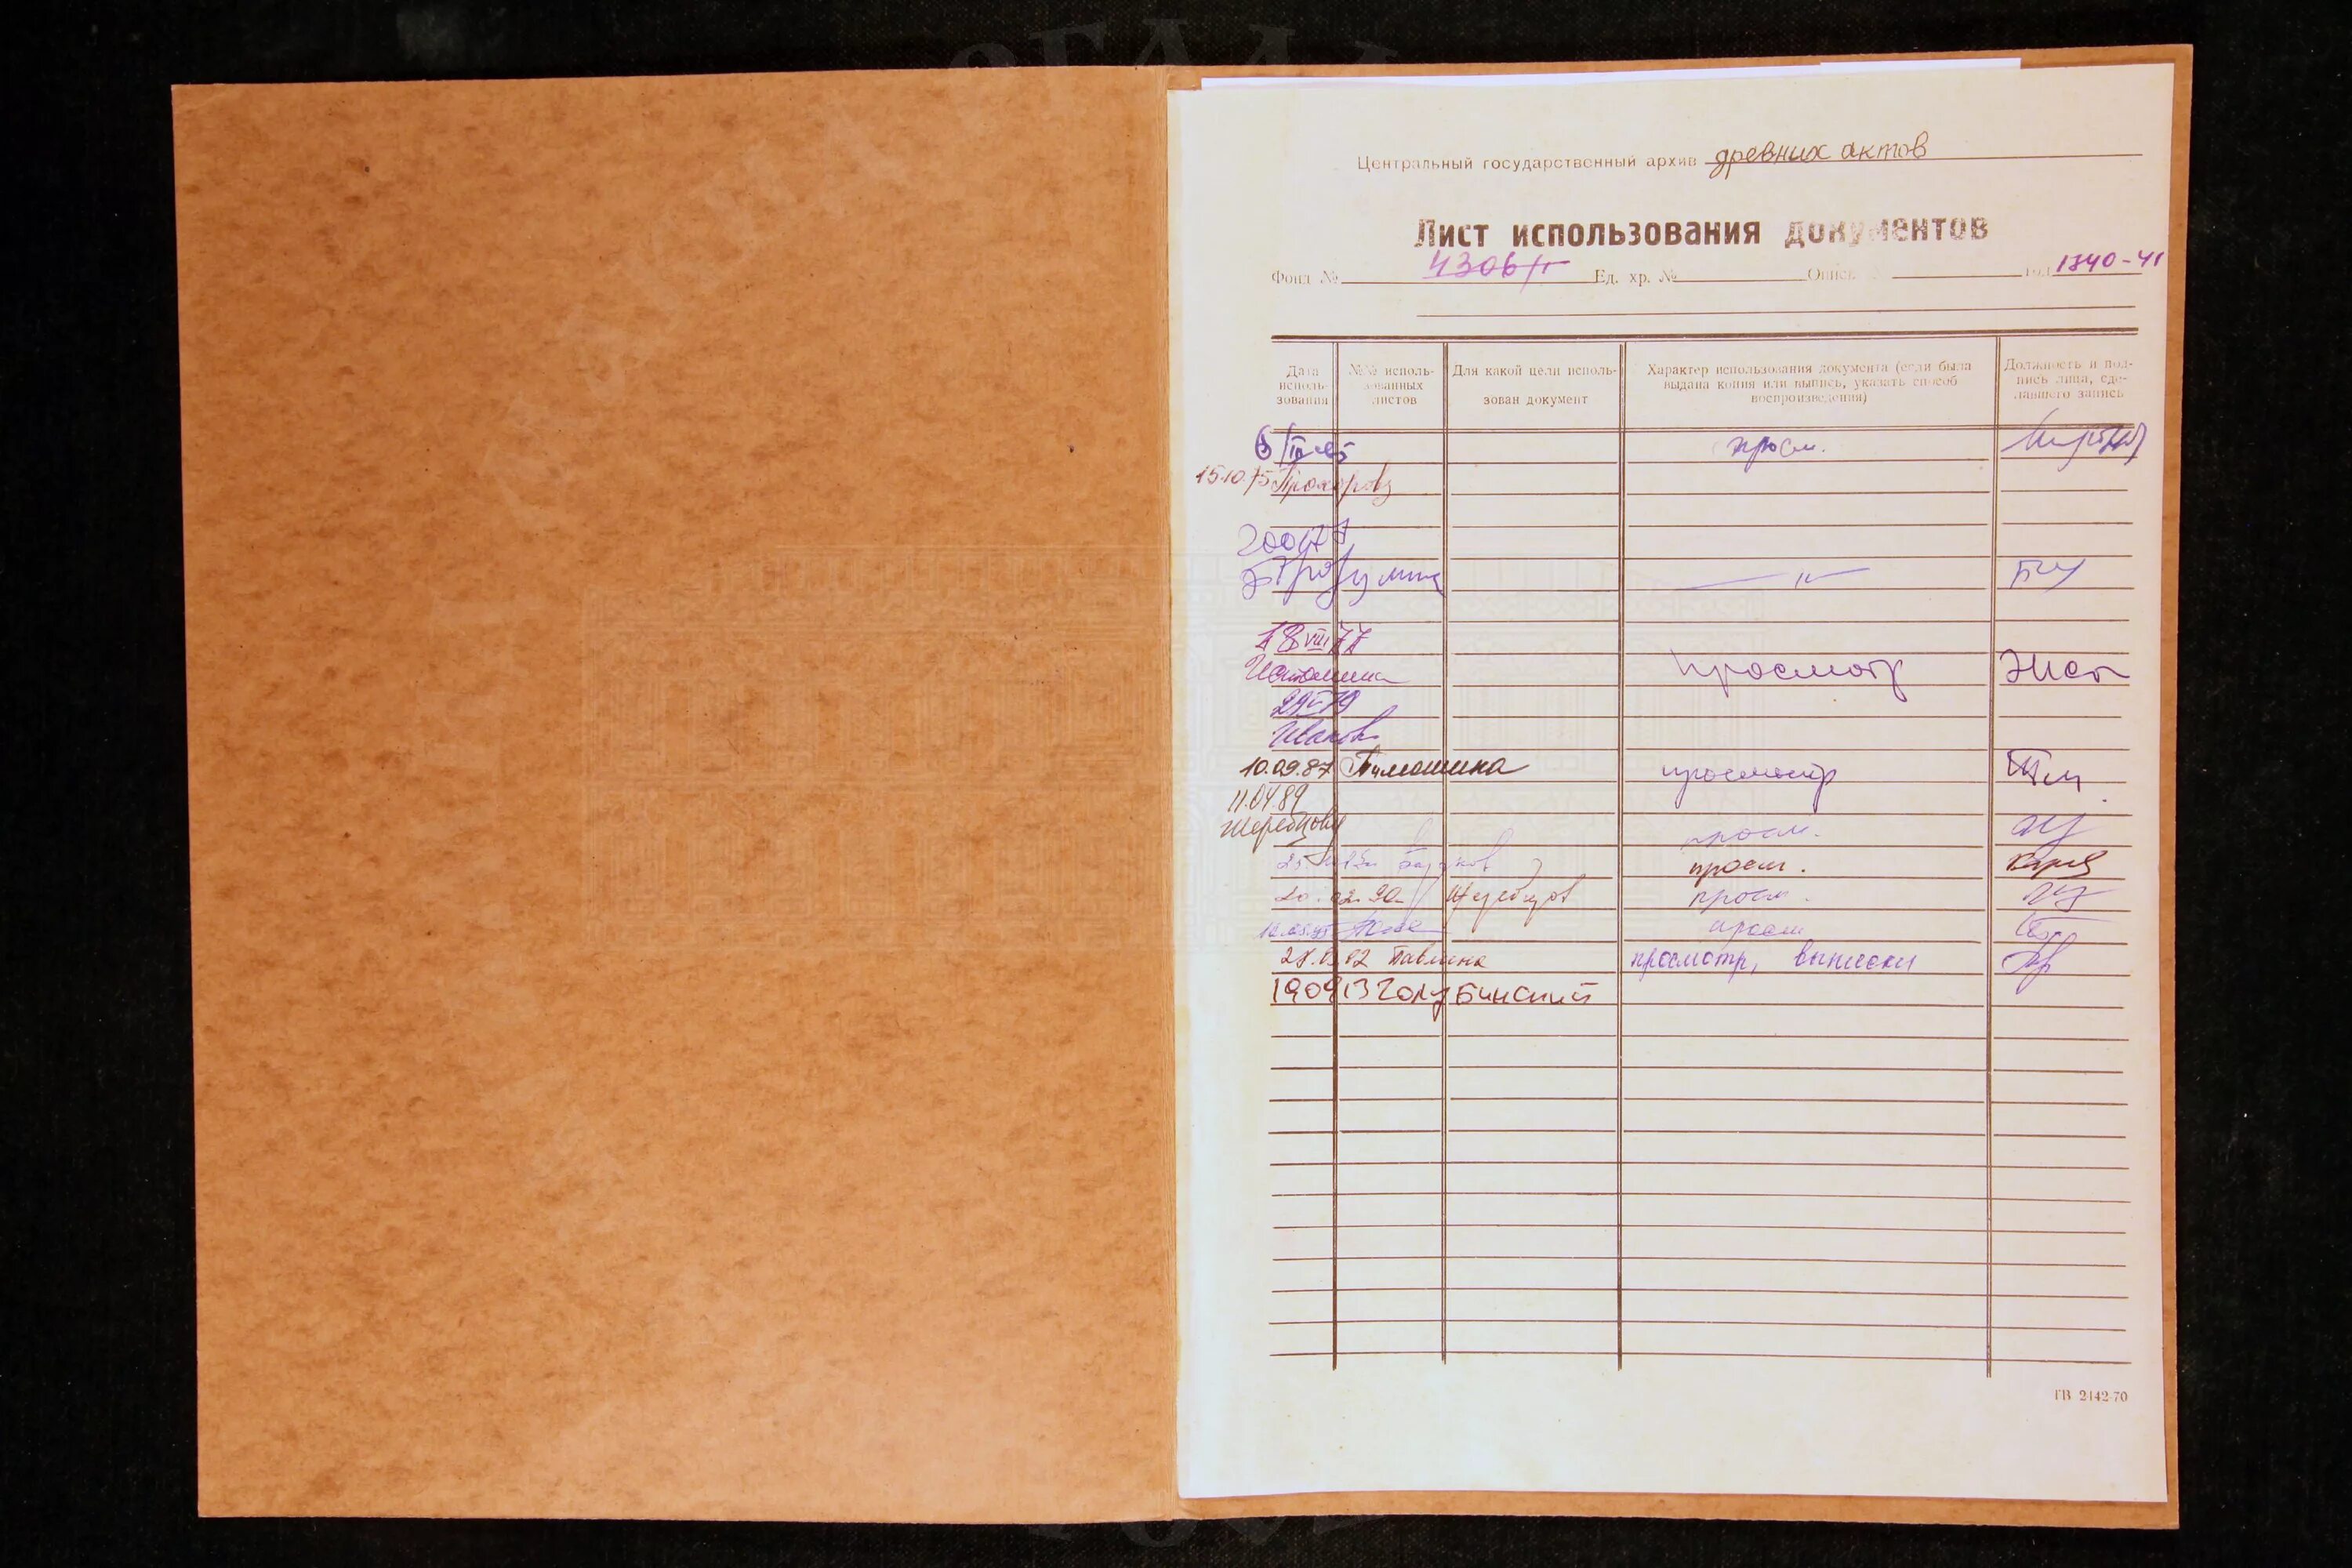 Центральный государственный архив древних актов
Лист использования документов
Фонд № 4306/ Ед. хр. № Опись год 1740-41
Дата исполь-зования
№№ исполь-зованных листов
Для какой цели исполь-зован документ
Характер использования документа (если была выдана копия или выпись, указать способ воспроизведения)
Должность и под-пись лица, сде-лавшего запись
просм.
15.10.75 Прохорова
18 VIII 77
Истомина просмотр
Иванов
10.09.87 Тимошина просмотр
11.04.89
Жеребцова просм.
просм.
20.02.90 Жеребцов просм.
просм
Павлина просмотр, выписки
190913 Голубинский
ГВ 2142-70